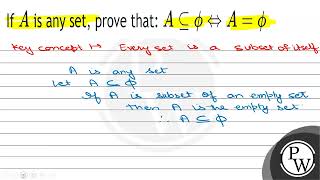 If A is any set, prove that: A ⊆ ϕ ⇔ A = ϕ
Key concept ↦ Every set is a subset of itself
A is any set
Let A ⊆ ϕ
If A is subset of an empty set
then A is be empty set
∴ A ⊆ ϕ
P
W